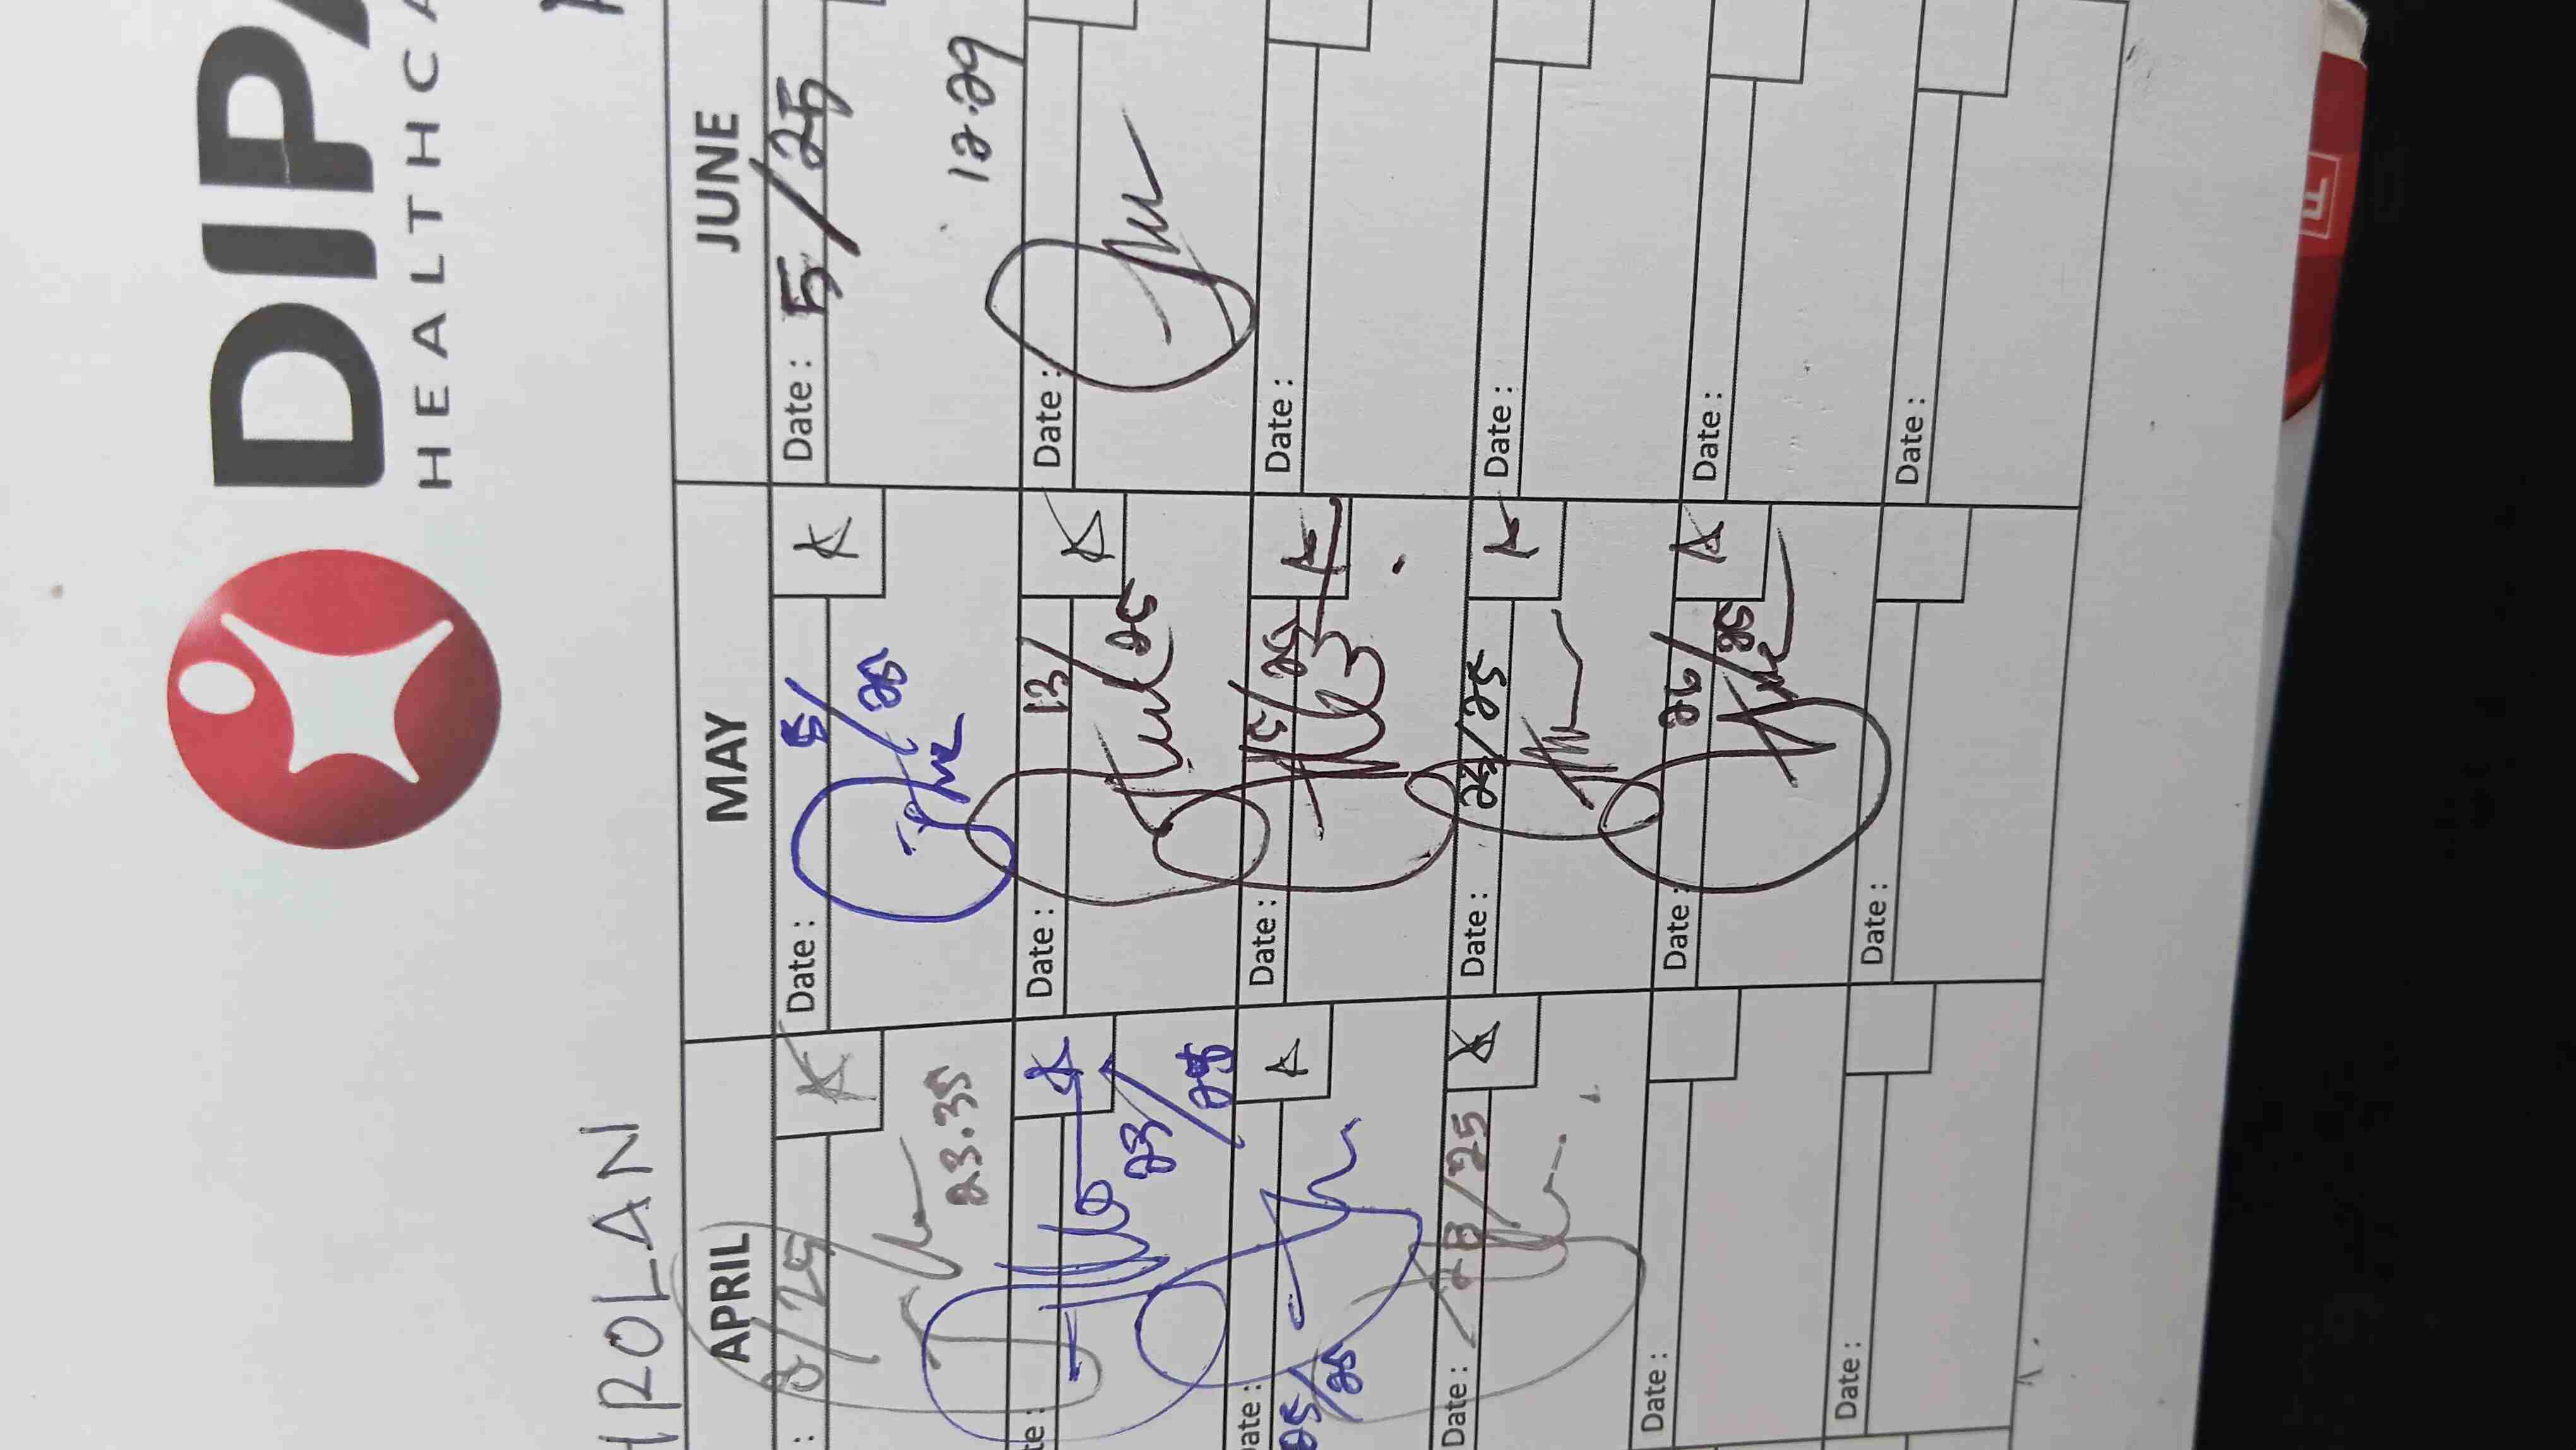 DIPA
HEALTHCA
HROLAN
APRIL MAY JUNE
: 2/25 K
23.35
Date: 5/25 K
Date: 5/25
12.29
te: 23/25 K
Date: 13/25 K
Date:
Date: 25/25 K
Date: 15/25 K
Date:
Date: 28/25 K
Date: 23/25 K
Date:
Date:
Date: 26/25 K
Date:
Date:
Date:
Date: